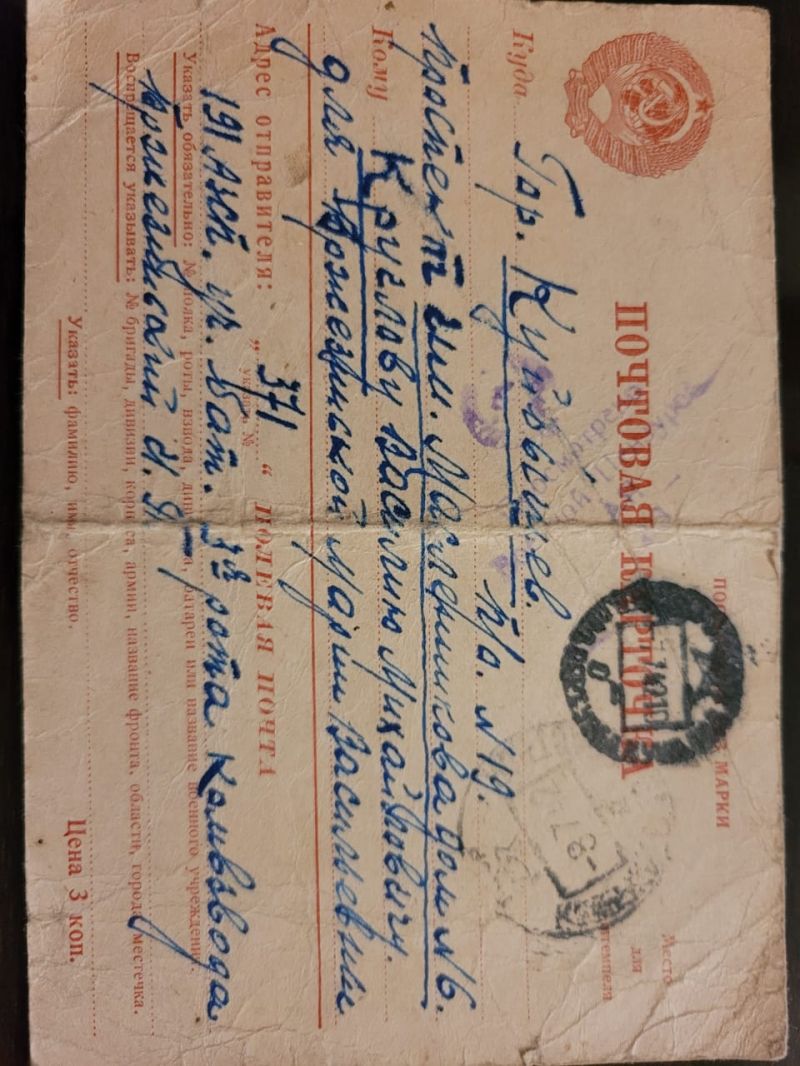 ПОЧТОВАЯ КАРТОЧКА
МАРКИ
Место
для
штемпеля
Куда Гор. Куйбышев. п/о. N 19.
Проспект им. Масленникова дом N 6.
Кому Круглову Василию Михайловичу.
для Држезгинской Марии Васильевны
Адрес отправителя: „ 371 “ ПОЛЕВАЯ ПОЧТА
указать №
191 Бат. 3я рота Комвзвода
Указать обязательно: № полка, роты, взвода, батареи или название военного учреждения.
И. Я.
Воспрещается указывать: № бригады, дивизии, корпуса, армии, название фронта, области, города, местечка.
Указать: фамилию, имя, отчество.
Цена 3 коп.